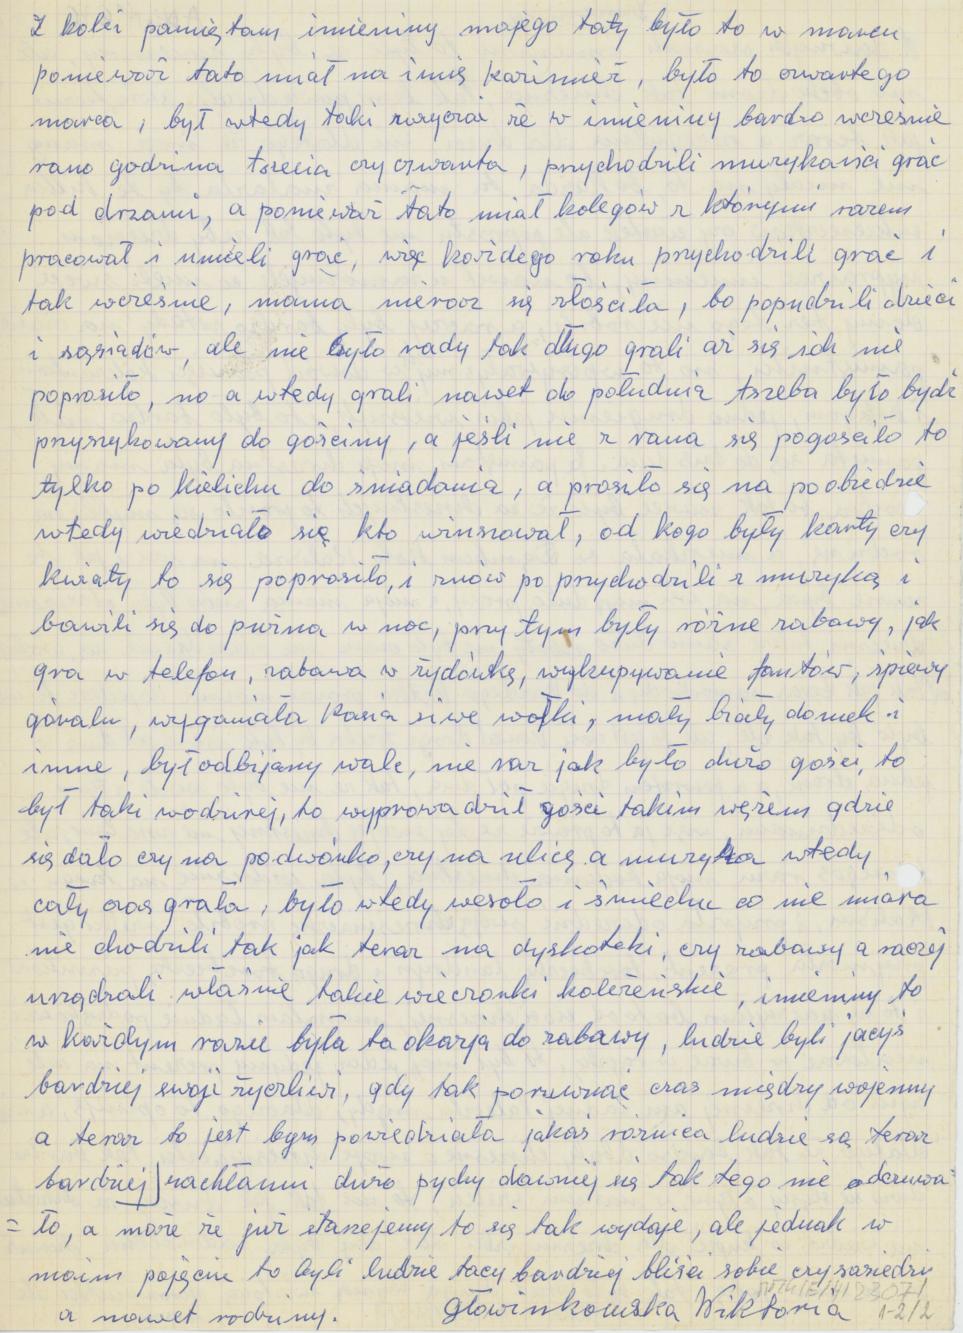 Z kolei pamiętam imieniny mojego taty było to w marcu
poniewarz tato miał na imię Kazimież, było to czwartego
marca, był wtedy taki zwyczai że w imieniny bardzo wcześnie
rano godzina tszecia czy czwarta, przychodzili muzykańci grać
pod drzwami, a poniewarz Tato miał kolegów z którymi razem
pracował i umieli grać, więc każdego roku przychodzili grać i
tak wcześnie, mama nieraz się złościła, bo popudzili dzieci
i sąsiadów, ale nie było rady tak długo grali aż się ich nie
poprosiło, no a wtedy grali nawet do południa tszeba było bydź
przyszykowany do gościny, a jeśli nie z rana się pogościło to
tylko po kielichu do śniadania, a prosiło się na poobiedzie
wtedy wiedziało się kto winszował, od kogo były karty czy
kwiaty to się poprosiło, i znów po przychodzili z muzyką i
bawili się do puźna w noc, przy tym były różne zabawy, jak
gra w telefon, zabawa w żydówkę, wykupywanie fantów, śpiewy
góralu, wyganiała Kasia siwe wołki, mały biały domek i
inne, był odbijany walc, nie raz jak było dużo gości, to
był taki wodzirej, to wyprowadził gości takim wężem gdzie
się dało czy na podwórko, czy na ulicę a muzyka wtedy
cały czas grała, było wtedy wesoło i śmiechu co nie miara
nie chodzili tak jak teraz na dyskoteki, czy zabawy a raczej
urządzali właśnie takie wieczorki koleżeńskie, imieniny to
w każdym razie była ta okazja do zabawy, ludzie byli jacyś
bardziej swoji życzliwi, gdy tak porównać czas między wojenny
a teraz to jest bym powiedziała jakaś różnica ludzie są teraz
bardziej zachłanni dużo pychy dawniej się tak tego nie odczuwa=
=ło, a może że już starzejemy to się tak wydaje, ale jednak w
moim pojęciu to byli ludzie tacy bardziej bliżsi sobie czy sąsiedzi
a nawet rodziny. Głowinkowska Wiktoria
1-2/2